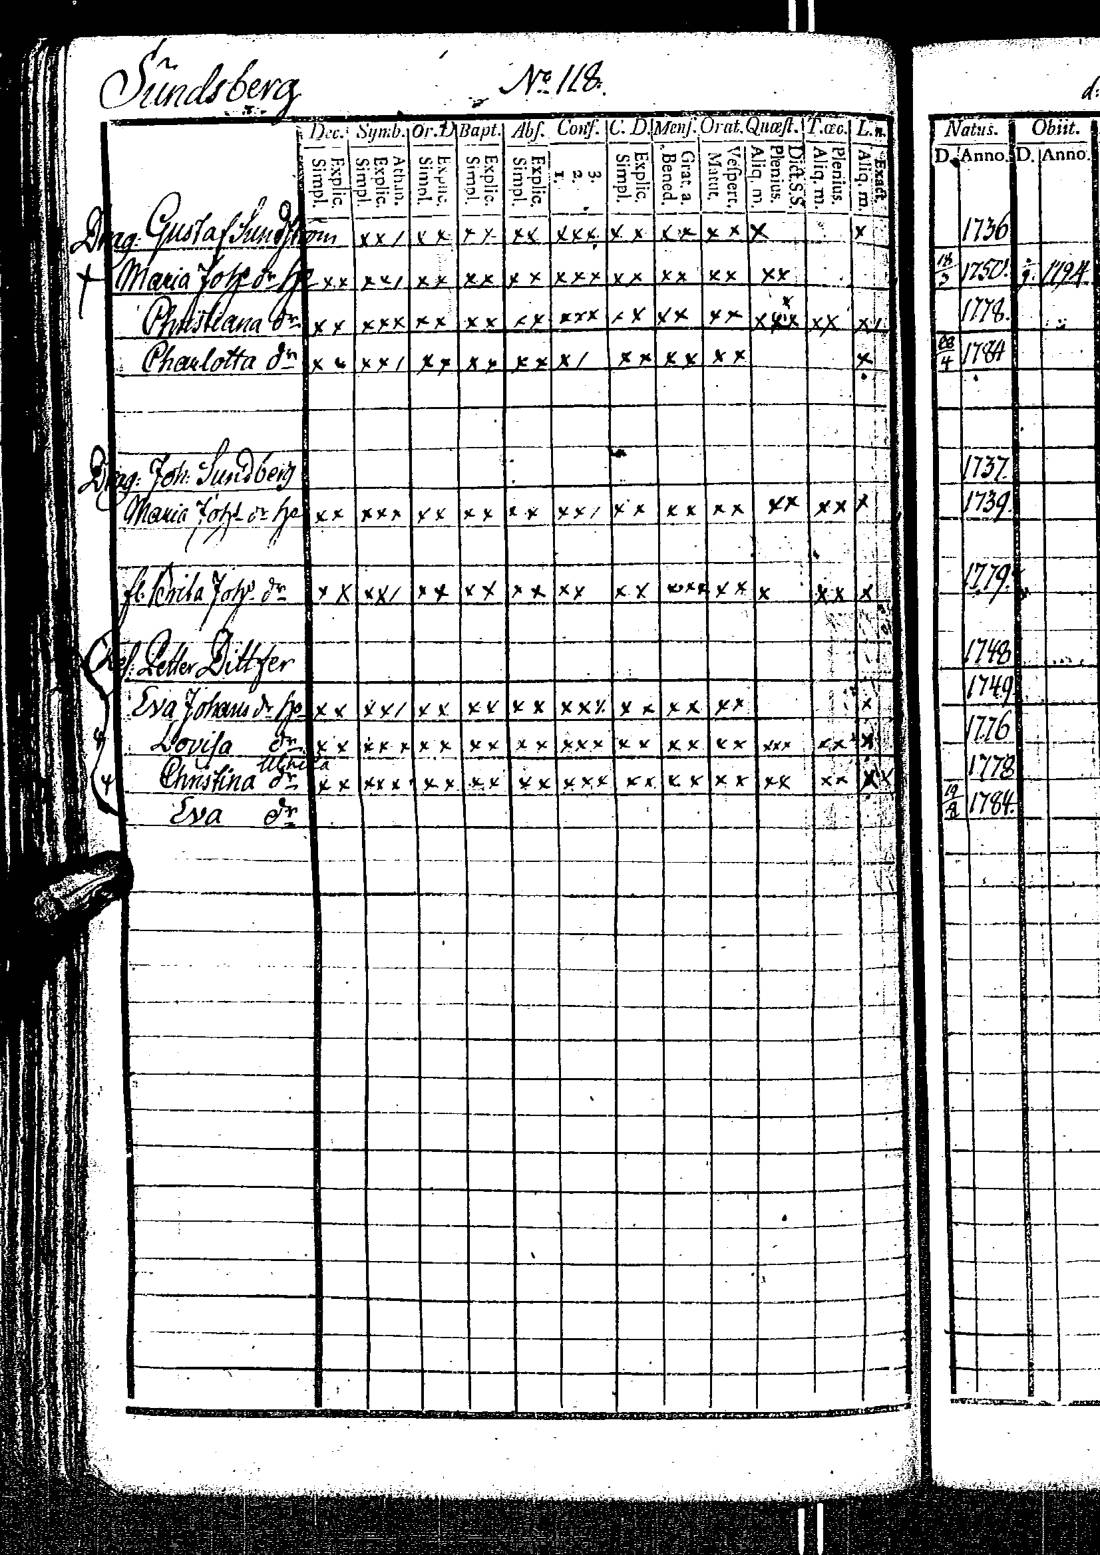 Sundsberg No 118.
Dec. Symb. Or. D Bapt. Abs. Conf. C. D. Mens. Orat. Quæst. T. œo. L. n. Natus. Obiit.
Simpl. Explic. Simpl. Explic. Athan. Simpl. Explic. Simpl. Explic. Simpl. Explic. 1. 2. 3. Simpl. Explic. Bened. Grat. a. Matut. Vespert. Aliq. m. Plenius. Dict. S.S. Aliq. m. Plenius. Aliq. m. Exact. D. Anno. D. Anno.
Drag. Gustaf Sundström x x / x x x x x x x x x x x x x x x x x x 1736
Maria Johs dr x x x x / x x x x x x x x x x x x x x x x x x x 18/3 1750 9. 1794
Christiana dr x x x x x x x x x x x x x x x x x x x x x x x x x x x / 1778.
Charlotta dr x x x x / x x x x x x x / x x x x x x x 4 1784
Drag. Joh. Sundberg 1737.
Maria Johs dr x x x x x x x x x x x x x / x x x x x x x x x x x 1739.
Johs dr x x x x / x x x x x x x x x x x x x x x x x x 1779.
Petter 1748
Eva Johans dr x x x x / x x x x x x x x x x x x x x x x 1749
Lovisa dr x x x x x x x x x x x x x x x x x x x x x x x x x x x 1776
Ulrica
Christina dr x x x x x x x x x x x x x x x x x x x x x x x x x x x 1778
Eva dr 1784.